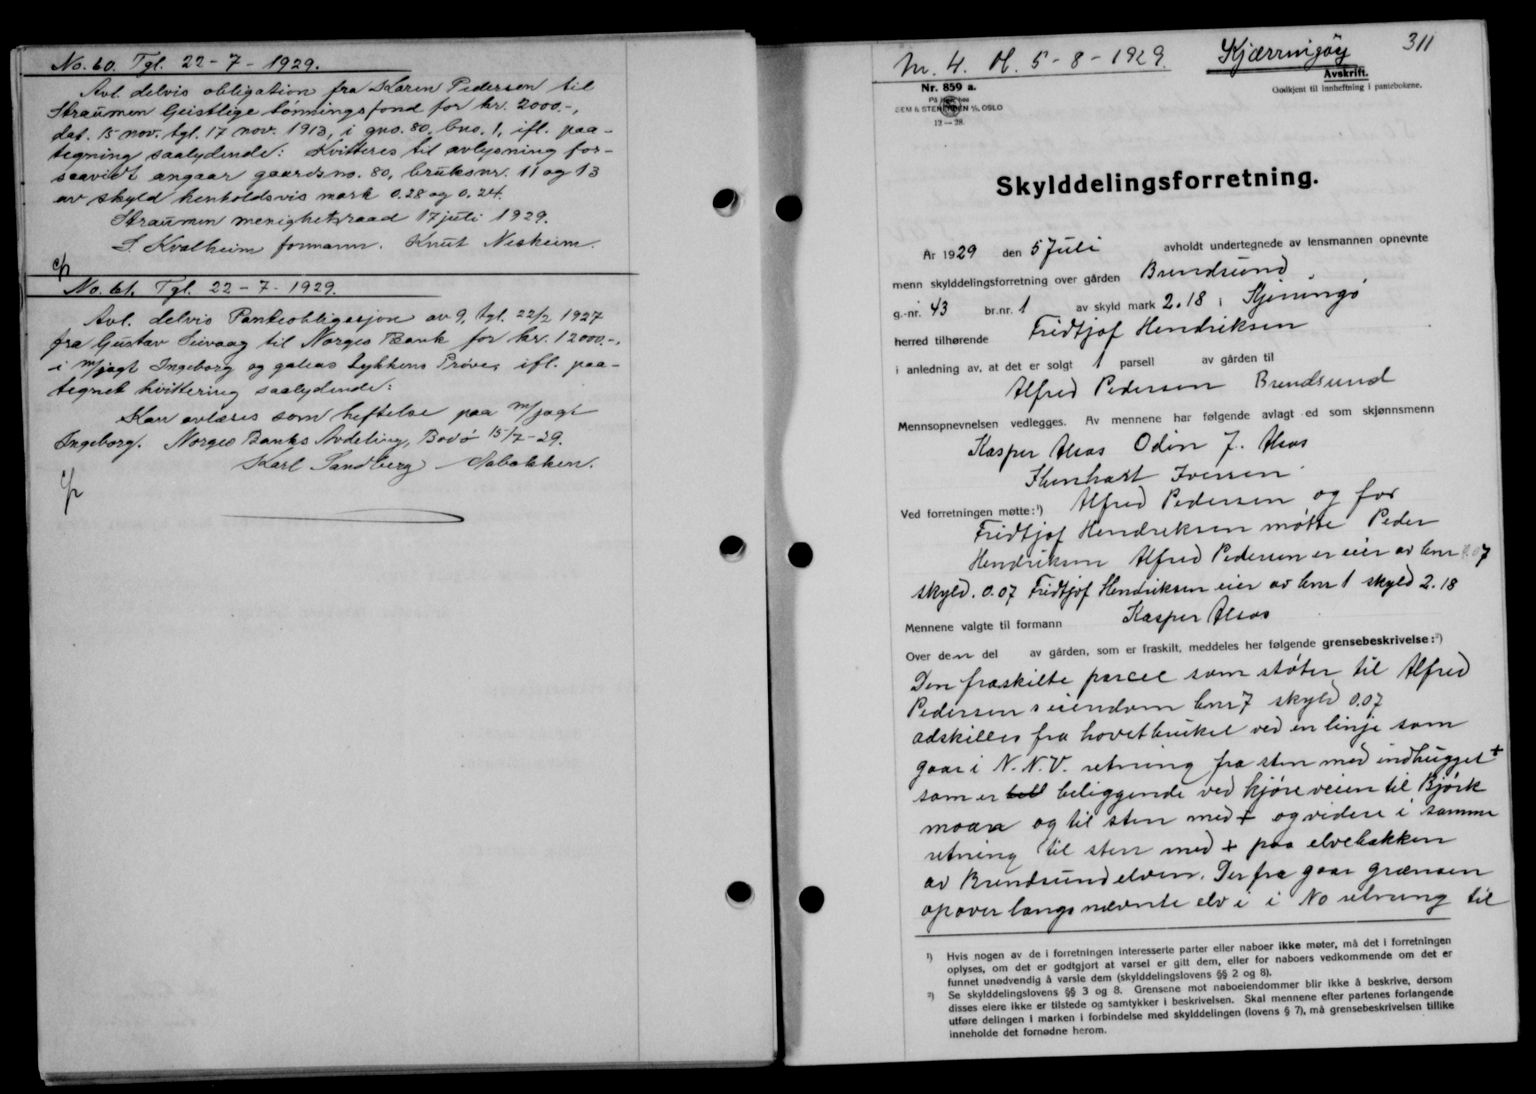 No. 60. Tgl. 22-7-1929.
Avl. delvis obligation fra Karen Pedersen til
Straumen Geistlige lönningsfond for kr. 2000.-,
dat. 15 nov. tgl. 17 nov. 1913, i gno. 80, bno. 1, ifl. paa-
tegning saalydende: Kvitteres til avlysning for-
saavidt angaar gaardsno. 80, bruksnr. 11 og 13
av skyld henholdsvis mark 0.28 og 0.24.
Straumen menighetsraad 17 juli 1929.
S. Kvalheim formann. Knut Neskeim.
No. 61. Tgl. 22-7-1929.
Avl. delvis Panteobligasjon av 9, tgl. 22/2 1927
fra Gustav Seivaag til Norges Bank for kr. 12000.-,
i m/jagt Ingeborg og galeas Lykkens Pröve, ifl. paa-
tegnet kvittering saalydende:
Kan avlæses som heftelse paa m/jagt
Ingeborg. Norges Banks Avdeling, Bodö 15/7-29.
Karl Sandberg
Nr. 4. Tgl. 5-8-1929. Kjærringöy 311
Avskrift.
Nr. 859 a. Godkjent til innheftning i pantebokene.
På lager hos
SEM & STENERSEN A/S, OSLO
12-28.
Skylddelingsforretning.
År 1929 den 5 Juli avholdt undertegnede av lensmannen opnevnte
menn skylddelingsforretning over gården Brendsund
g.-nr. 43 br.nr. 1 av skyld mark 2.18 i Kjeringö
herred tilhørende Fridtjof Hendriksen
i anledning av, at det er solgt 1 parsell av gården til
Alfred Pedersen Brendsund
Mennsopnevnelsen vedlegges. Av mennene har følgende avlagt ed som skjønnsmenn
Kasper Alsos Odin J. Alsos
Iversen
Ved forretningen møtte:¹) Alfred Pedersen og for
Fridtjof Hendriksen mötte Peder
Hendriksen Alfred Pedersen er eier av bnr 7
skyld. 0.07 Fridtjof Hendriksen eier av bnr 1 skyld 2.18
Mennene valgte til formann Kasper Alsos
Over den del av gården, som er fraskilt, meddeles her følgende grensebeskrivelse:²)
Den fraskilte parcel som stöter til Alfred
Pedersen s eiendom bnr 7 skyld 0.07
adskilles fra hovetbruket ved en linje som
gaar i N.N.V. retning fra sten med indhugget +
som er beliggende ved kjöreveien til Björk
moan og til sten med + og videre i samme
retning til sten med + paa elvebakken
av Brendsundelven. Derfra gaar grænsen
opover langs nævnte elv i i No retning til
¹) Hvis nogen av de i forretningen interesserte parter eller naboer ikke møter, må det i forretningen
oplyses, om det er godtgjort at varsel er gitt dem, eller for naboers vedkommende om det er
funnet unødvendig å varsle dem (skylddelingslovens §§ 2 og 8).
²) Se skylddelingslovens §§ 3 og 8. Grensene mot naboeiendommer blir ikke å beskrive, dersom
disses eiere ikke er tilstede og samtykker i beskrivelsen. Skal mennene efter partenes forlangende
utføre delingen i marken i forbindelse med skylddelingen (lovens § 7), må grensebeskrivelsen tillike
inneholde det fornødne herom.